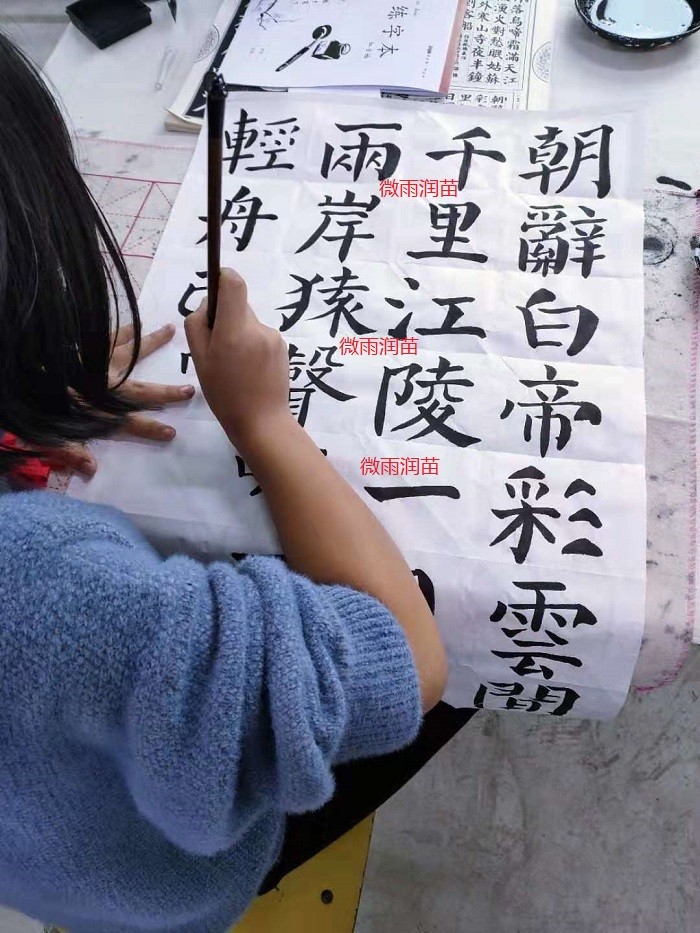 朝辭白帝彩雲間
千里江陵一
兩岸猿聲
輕舟
微雨润苗
微雨润苗
微雨润苗
练字本
落烏啼霜滿天江
漁火對愁眠姑蘇
外寒山寺夜半鐘
到客船